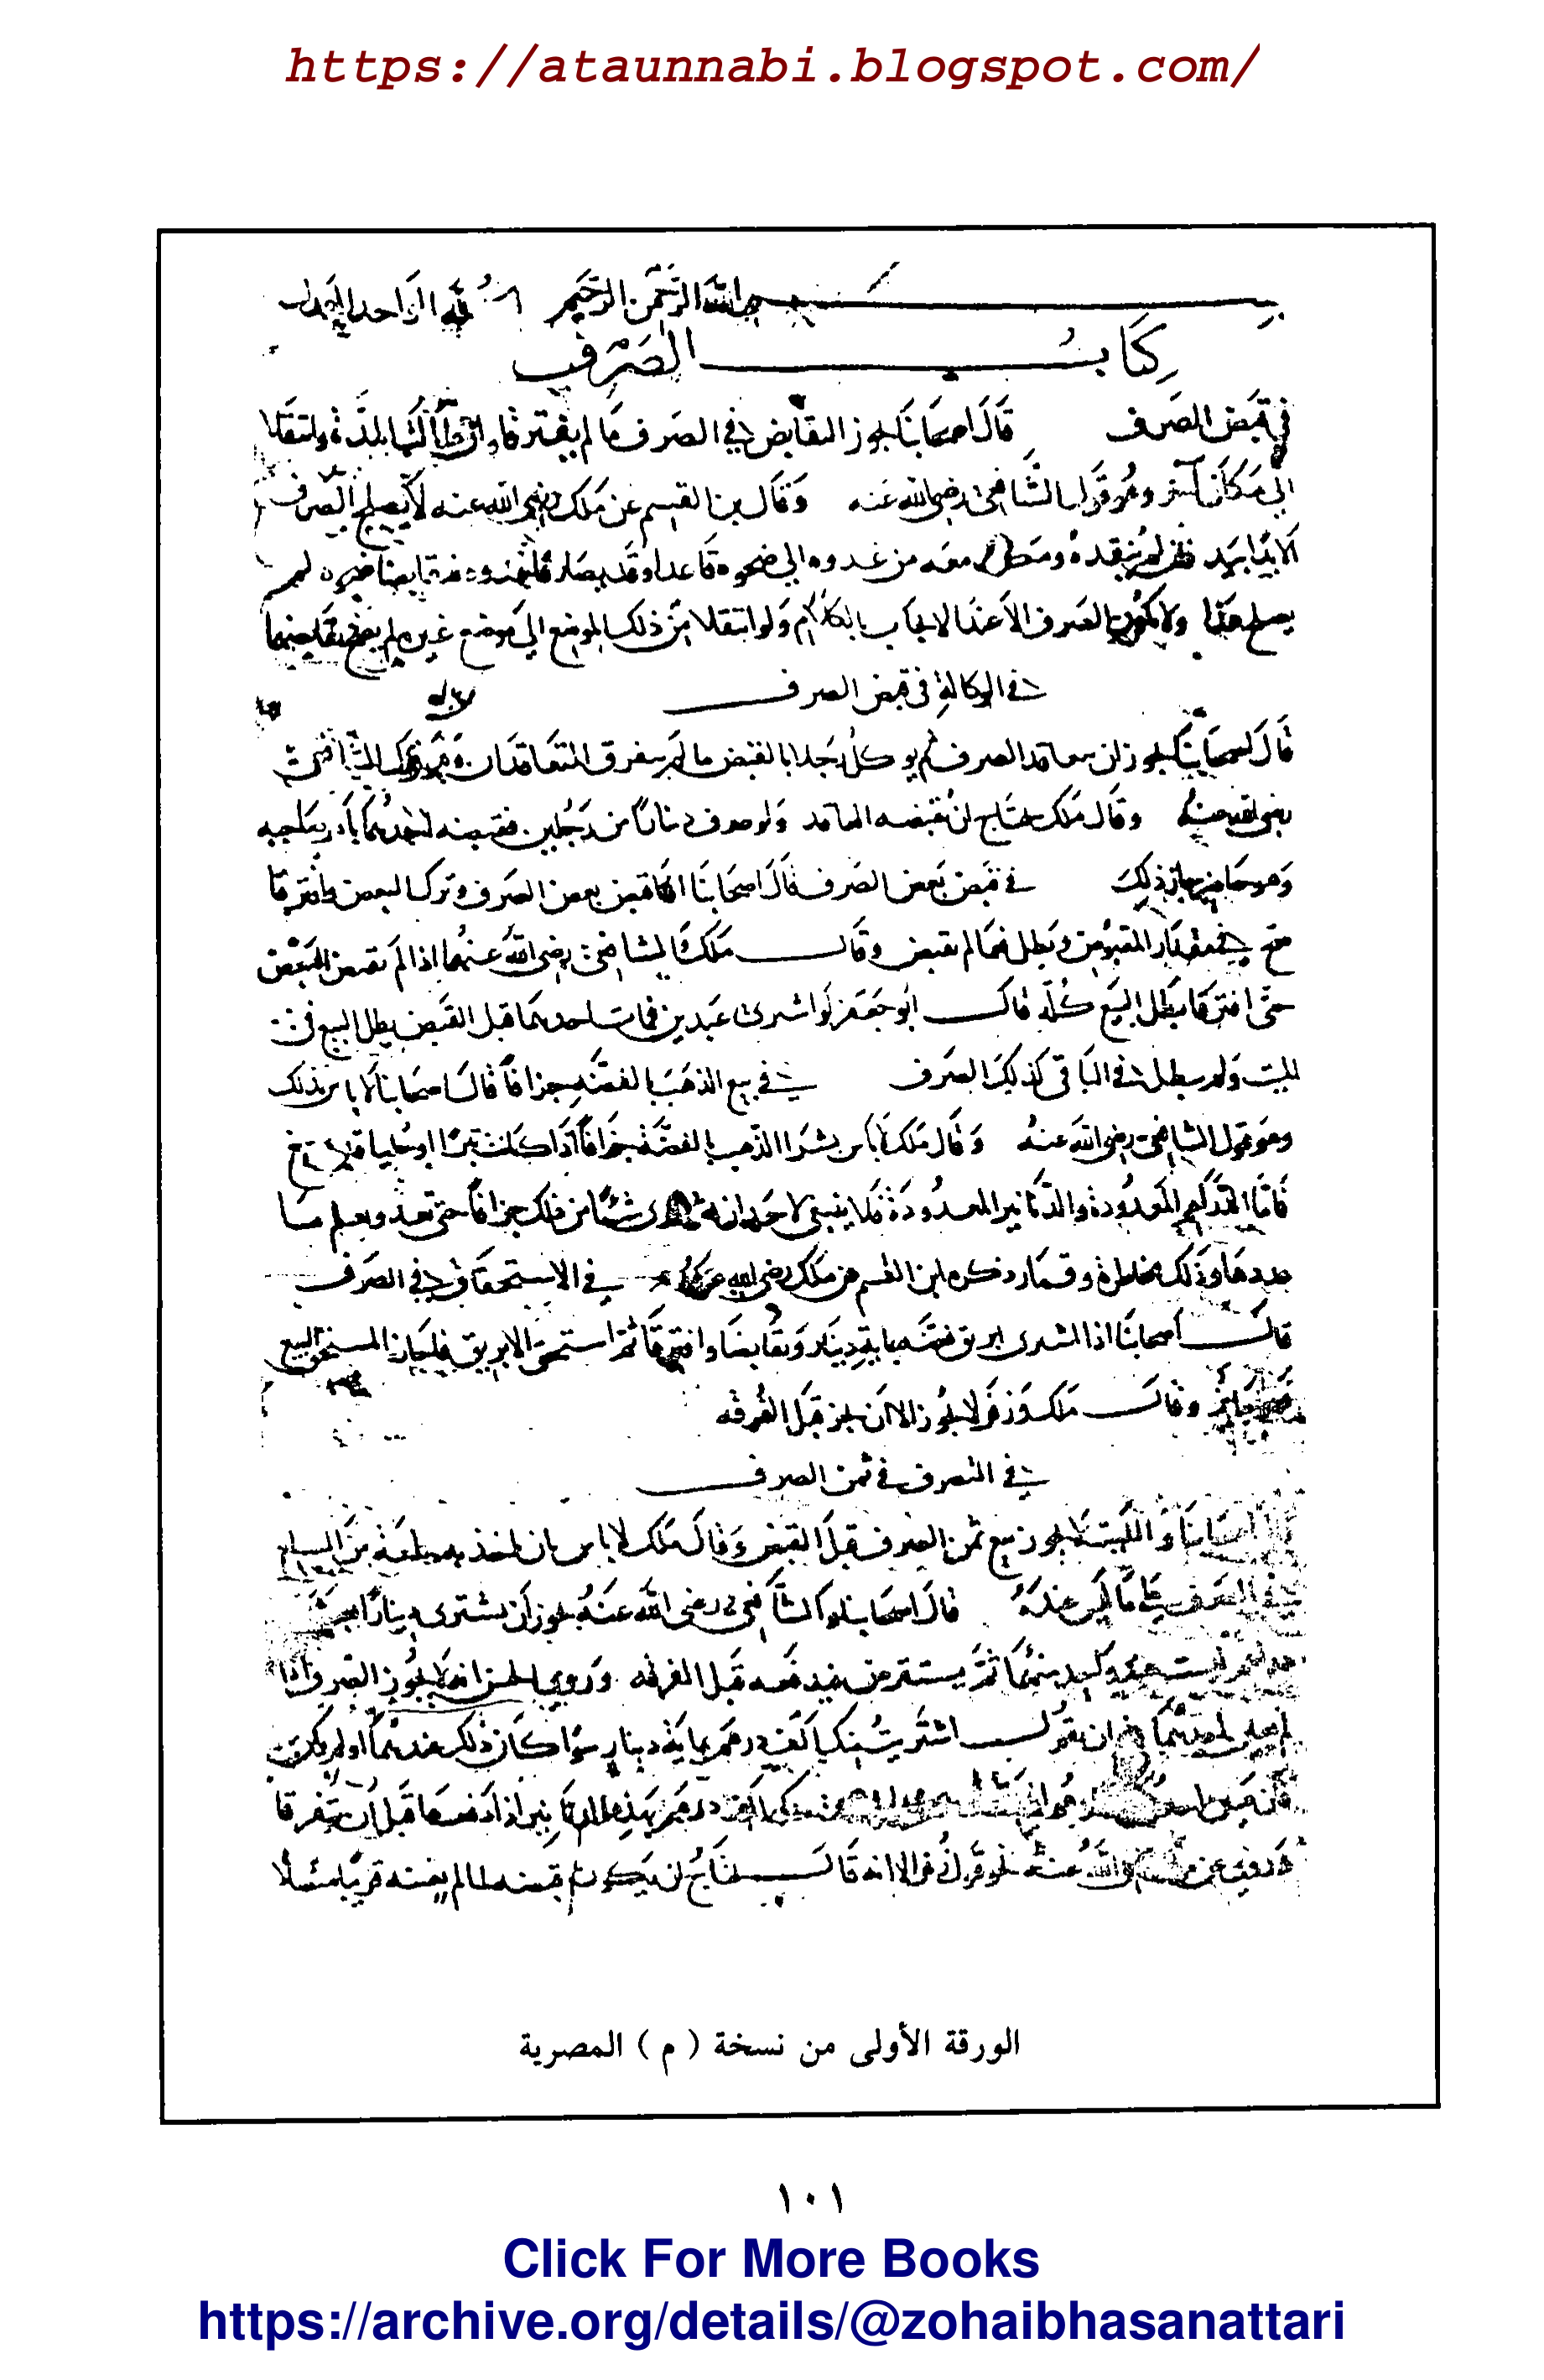 https://ataunnabi.blogspot.com/
بسم الله الرحمن الرحيم لله الواحد
كتاب الصرف
في قبض الصرف قال اصحابنا يجوز التقابض في الصرف ما لم يفترقا وان طالت المدة وانتقلا
الى مكان آخر وهو قول الشافعي رضي الله عنه وقال بن القسم عن ملك رضي الله عنه لا يصلح الصرف
الا يدا بيد فان لم ينقده ومكث معه من غدوه الى ضحوه قاعدا وقد تصارفا غدوه فتقابضا ضحوه لم
يصلح هذا ولا يكون الصرف الا عند الايجاب بالكلام ولو انتقلا من ذلك الموضع الى موضع غيره لم يصح تقابضهما
في الوكالة في قبض الصرف
قال اصحابنا يجوز ان يعاقد الصرف ثم يوكل رجلا بالقبض ما لم يتفرق المتعاقدان وهو قول الشافعي
رضي الله عنه وقال ملك يحتاج ان يقبضه العاقد ولو صرف دينارا من رجلين فقبضه احدهما بامر صاحبه
وهو حاضر جاز ذلك في قبض بعض الصرف قال اصحابنا اذا قبض بعض الصرف وترك البعض وافترقا
صح في مقدار المقبوض وبطل فيما لم يقبض وقال ملك والشافعي رضي الله عنهما اذا لم يقبض البعض
حتى افترقا بطل البيع كله قال ابو جعفر لو اشترى عبدين فمات احدهما قبل القبض بطل البيع في
الميت ولم يبطل في الباقي كذلك الصرف في بيع الذهب بالفضة جزافا قال اصحابنا لا باس بذلك
وهو قول الشافعي رضي الله عنه وقال ملك لا باس بشرا الذهب بالفضة جزافا اذا كانت تبرا او حليا
فاما الدراهم المعدودة والدنانير المعدودة فلا ينبغي لاحد ان يشتري شيئا من ذلك جزافا حتى يعد ويعلم
عددها وذلك مخاطرة وقمار ذكره ابن القسم عن ملك رضي الله عنه في الاستحقاق في الصرف
قال اصحابنا اذا اشترى ابريق فضة بماية دينار وتقابضا وافترقا ثم استحق الابريق فاجاز المستحق البيع
وقال ملك وزفر لا يجوز الا ان يجيز قبل الفرقه
في التصرف في ثمن الصرف
قال اصحابنا والليث لا يجوز بيع ثمن الصرف قبل القبض وقال ملك لا باس بان ياخذ به سلعة
في الصرف على ما ليس عنده قال اصحابنا والشافعي رضي الله عنه يجوز ان يشتري دينارا
ليست عند كل منهما ثم يستقرض فيدفعه قبل الفرقه وروى الحسن انه لا يجوز الصرف اذا
ان يقول اشتريت منك الف درهم بماية دينار سوا كان ذلك عندهما او لم يكن
الف درهم بهذه الدنانير اذا دفعها قبل ان يتفرقا
وروي عن الله عنه نحو قول زفر الا انه قال يحتاج ان يكون قبضه لما لم يقبضه قريبا متصلا
الورقة الأولى من نسخة ( م ) المصرية
١٠١
Click For More Books
https://archive.org/details/@zohaibhasanattari